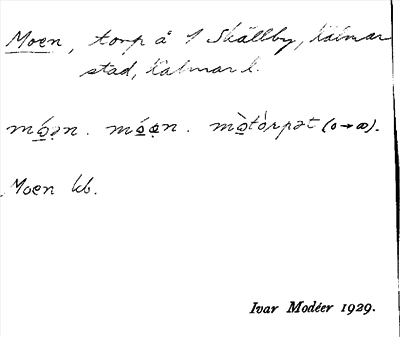 Moen, torp å 1 Skällby, Kalmar
stad, Kalmar l.
mó̲ən. mó̲ạn. mò̲tórpət (o→ω).
Moen kb.
Ivar Modéer 1929.